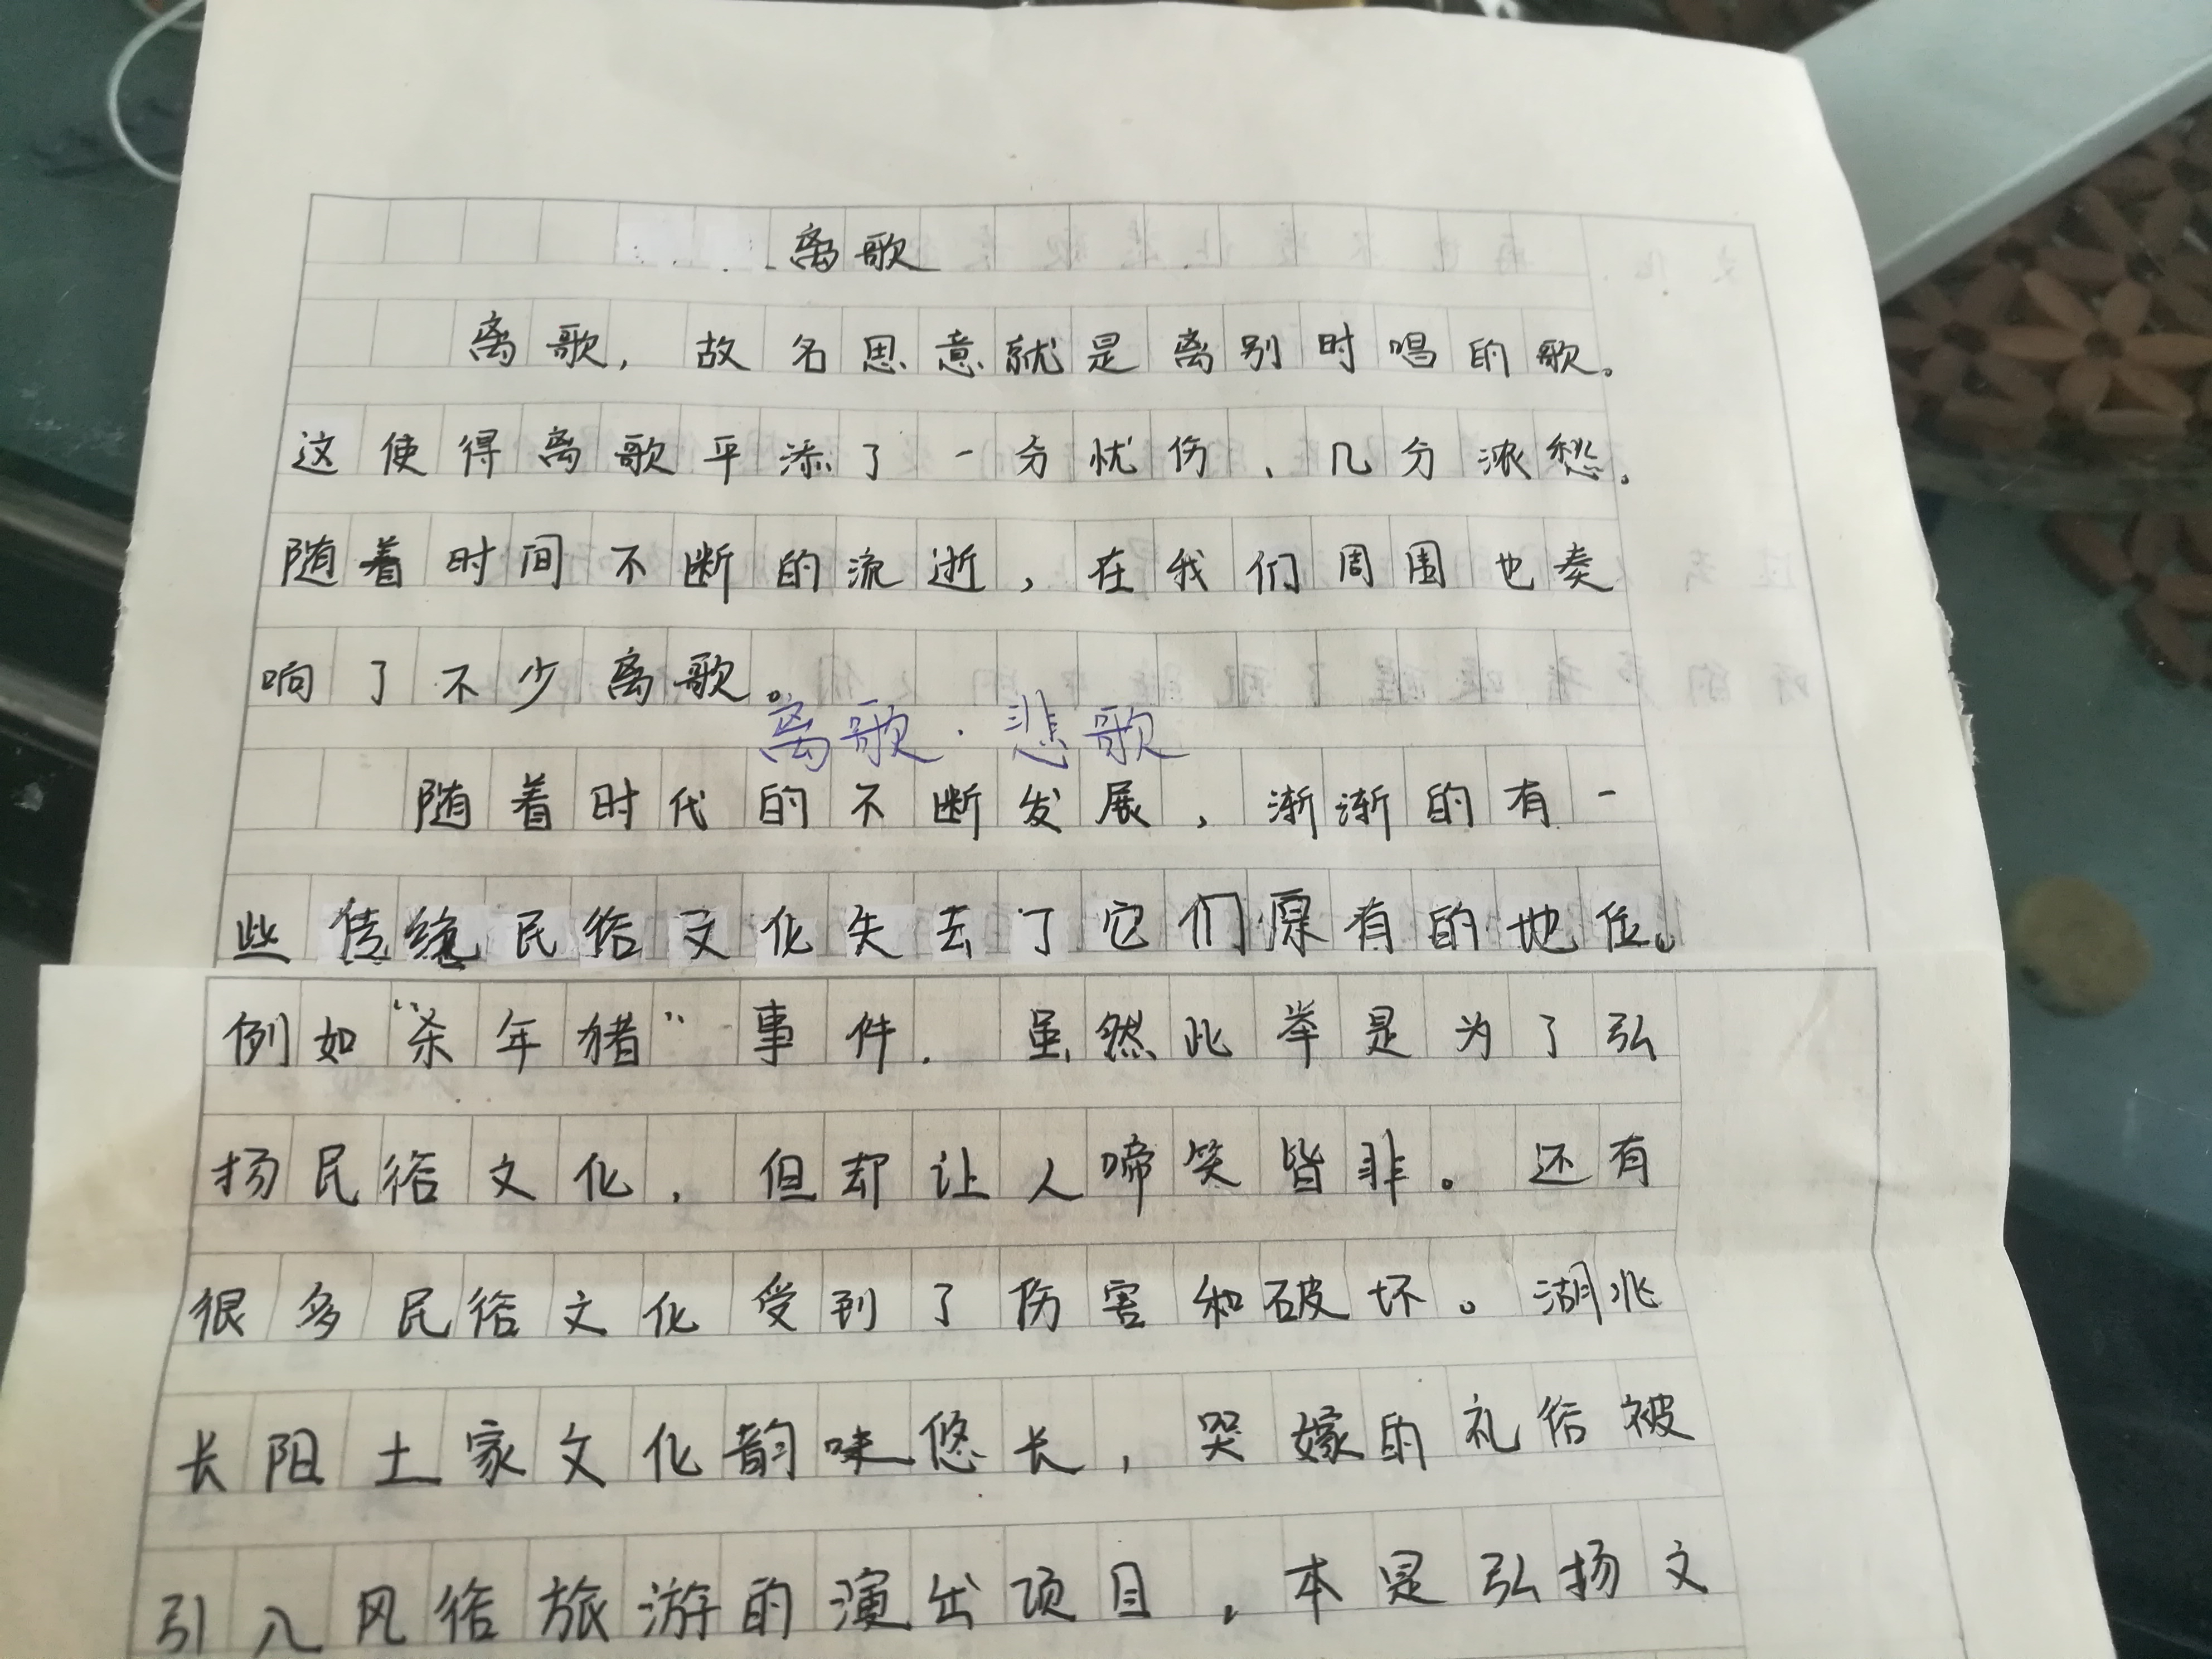 离歌
离歌，故名思意就是离别时唱的歌。
这使得离歌平添了一分忧伤、几分浓愁。
随着时间不断的流逝，在我们周围也奏
响了不少离歌。
离歌·悲歌
随着时代的不断发展，渐渐的有一
些传统民俗文化失去了它们原有的地位。
例如“杀年猪”事件．虽然此举是为了弘
扬民俗文化，但却让人啼笑皆非。还有
很多民俗文化受到了伤害和破坏。湖北
长阳土家文化韵味悠长，哭嫁的礼俗被
引入风俗旅游的演出项目，本是弘扬文